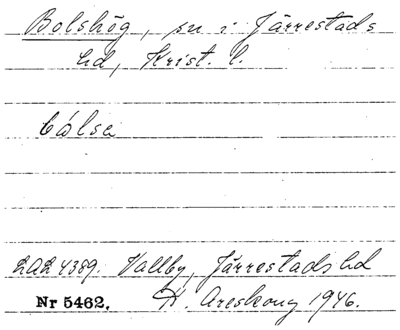 Bolshög, sn i Järrestads
hd, Krist. l.
bólsa
LAL 4389. Vallby, Järrestads hd
Nr 5462. H. Areskoug 1946.